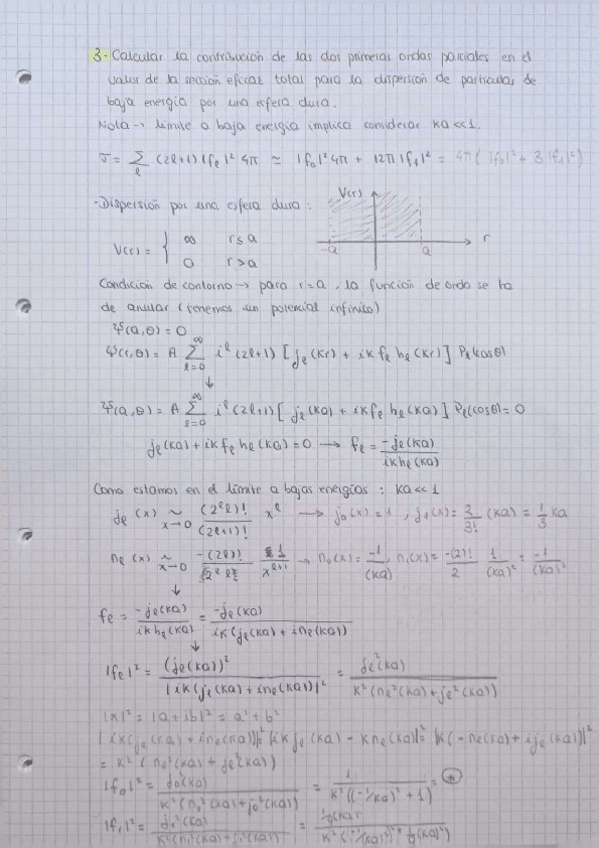 3. Calcular la contribución de las dos primeras ondas parciales en el
valor de la sección eficaz total para la dispersión de partículas de
baja energía por una esfera dura.
Nota → límite a baja energía implica considerar ka << 1.
σ = Σ_l (2l+1) |f_l|² 4π ≃ |f_0|² 4π + 12π |f_1|² = 4π ( |f_0|² + 3 |f_1|² )
· Dispersión por una esfera dura:
V(r)
-a a r
V(r) = { ∞ r ≤ a
0 r > a
Condición de contorno → para r = a, la función de onda se ha
de anular (tenemos un potencial infinito)
Ψ(a, θ) = 0
Ψ(r, θ) = A Σ_{l=0}^{∞} i^l (2l+1) [ j_l (kr) + i k f_l h_l (kr) ] P_l (cosθ)
↓
Ψ(a, θ) = A Σ_{l=0}^{∞} i^l (2l+1) [ j_l (ka) + i k f_l h_l (ka) ] P_l (cosθ) = 0
j_l (ka) + i k f_l h_l (ka) = 0 → f_l = -j_l (ka) / i k h_l (ka)
Como estamos en el límite a bajas energías: ka << 1
j_l (x) ~_{x→0} (2^l l)! / (2l+1)! x^l → j_0 (x) = 1, j_1 (x) = 2/3! (ka) = 1/3 ka
n_l (x) ~_{x→0} -(2l)! / 2^l l! 1 / x^{l+1} → n_0 (x) = -1 / (ka), n_1 (x) = -(2)! / 2 1 / (ka)² = -1 / (ka)²
↓
f_l = -j_l (ka) / i k h_l (ka) = -j_l (ka) / i k (j_l (ka) + i n_l (ka))
↓
|f_l|² = (j_l (ka))² / |i k (j_l (ka) + i n_l (ka))|² = j_l² (ka) / k² (n_l² (ka) + j_l² (ka))
|x|² = |a + ib|² = a² + b²
|i k (j_l (ka) + i n_l (ka))|² = |i k j_l (ka) - k n_l (ka)|² = |k (-n_l (ka) + i j_l (ka))|²
= k² (n_l² (ka) + j_l² (ka))
|f_0|² = j_0² (ka) / k² (n_0² (ka) + j_0² (ka)) = 1 / k² ((-1/ka)² + 1) =
|f_1|² = j_1² (ka) / k² (n_1² (ka) + j_1² (ka)) = 1/9 (ka)² / k² ((-1/(ka)²)² + 1/9 (ka)²)